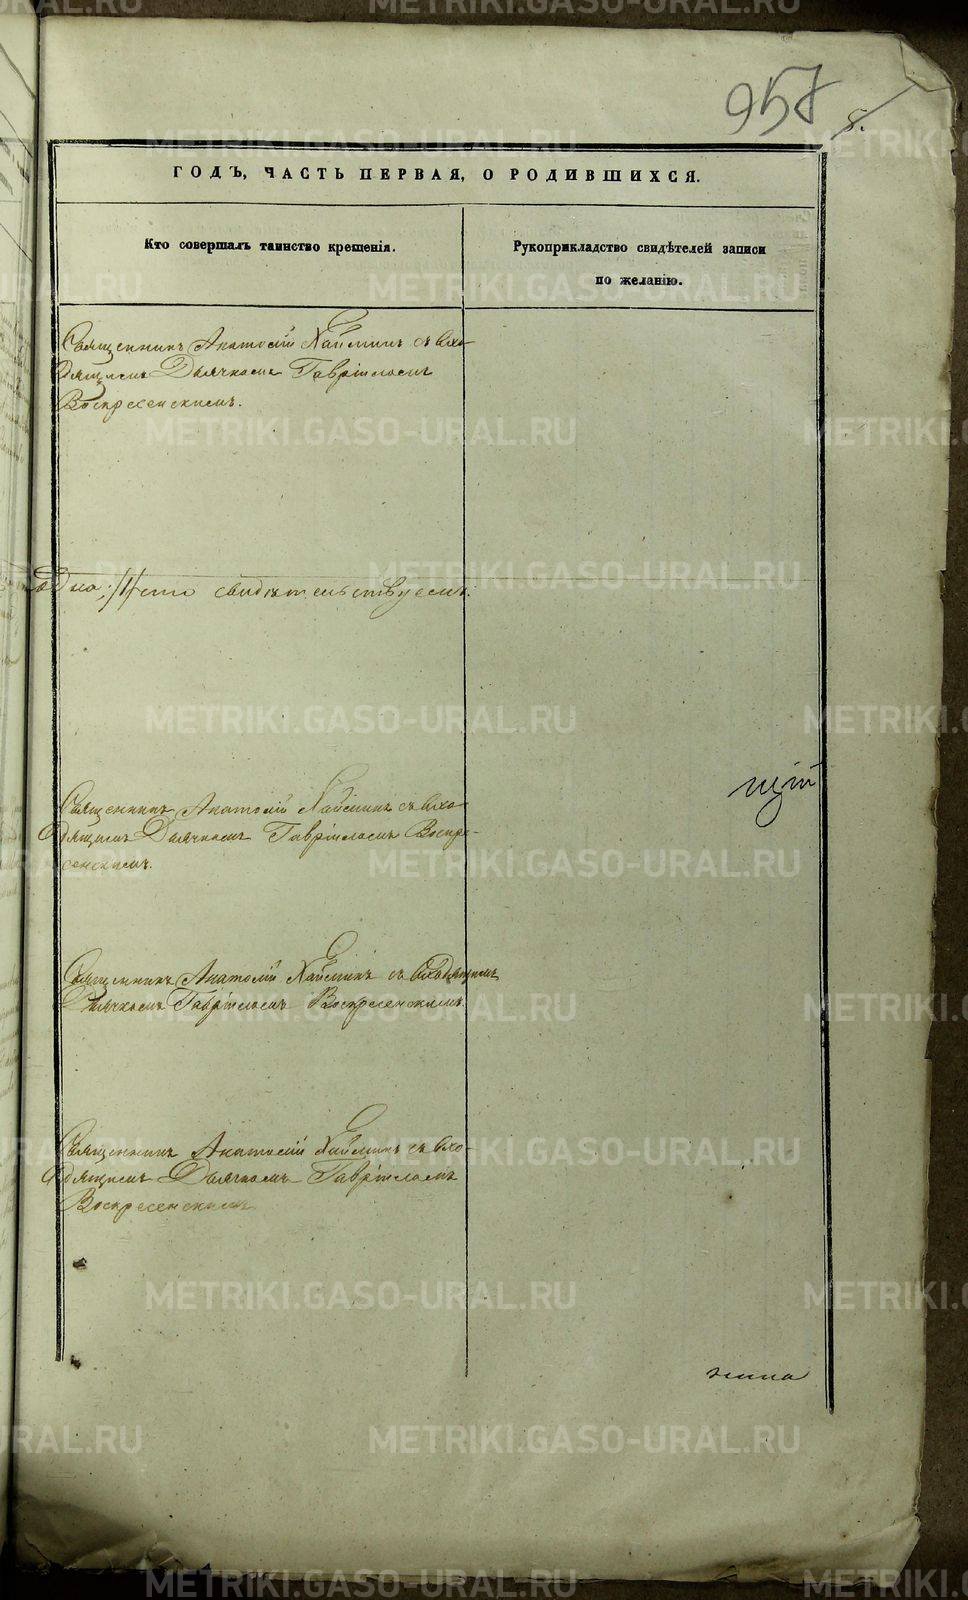 957
8.
ГОДЪ, ЧАСТЬ ПЕРВАЯ, О РОДИВШИХСЯ.
Кто совершалъ таинство крещенія.
Рукоприкладство свидѣтелей записи
по желанію.
Священникъ Анатолій с вхо-
дящимъ Дьячкомъ Гавріиломъ
Воскресенскимъ.
свидѣтельствуемъ.
Священникъ Анатолій съ вхо-
дящимъ Дьячкомъ Гавріиломъ Воскре-
сенскимъ.
щій
Священникъ Анатолій съ входящимъ
Дьячкомъ Гавріиломъ Воскресенскимъ
Священникъ Анатолій съ вхо-
дящимъ Дьячкомъ Гавріиломъ
Воскресенскимъ
METRIKI.GASO-URAL.RU